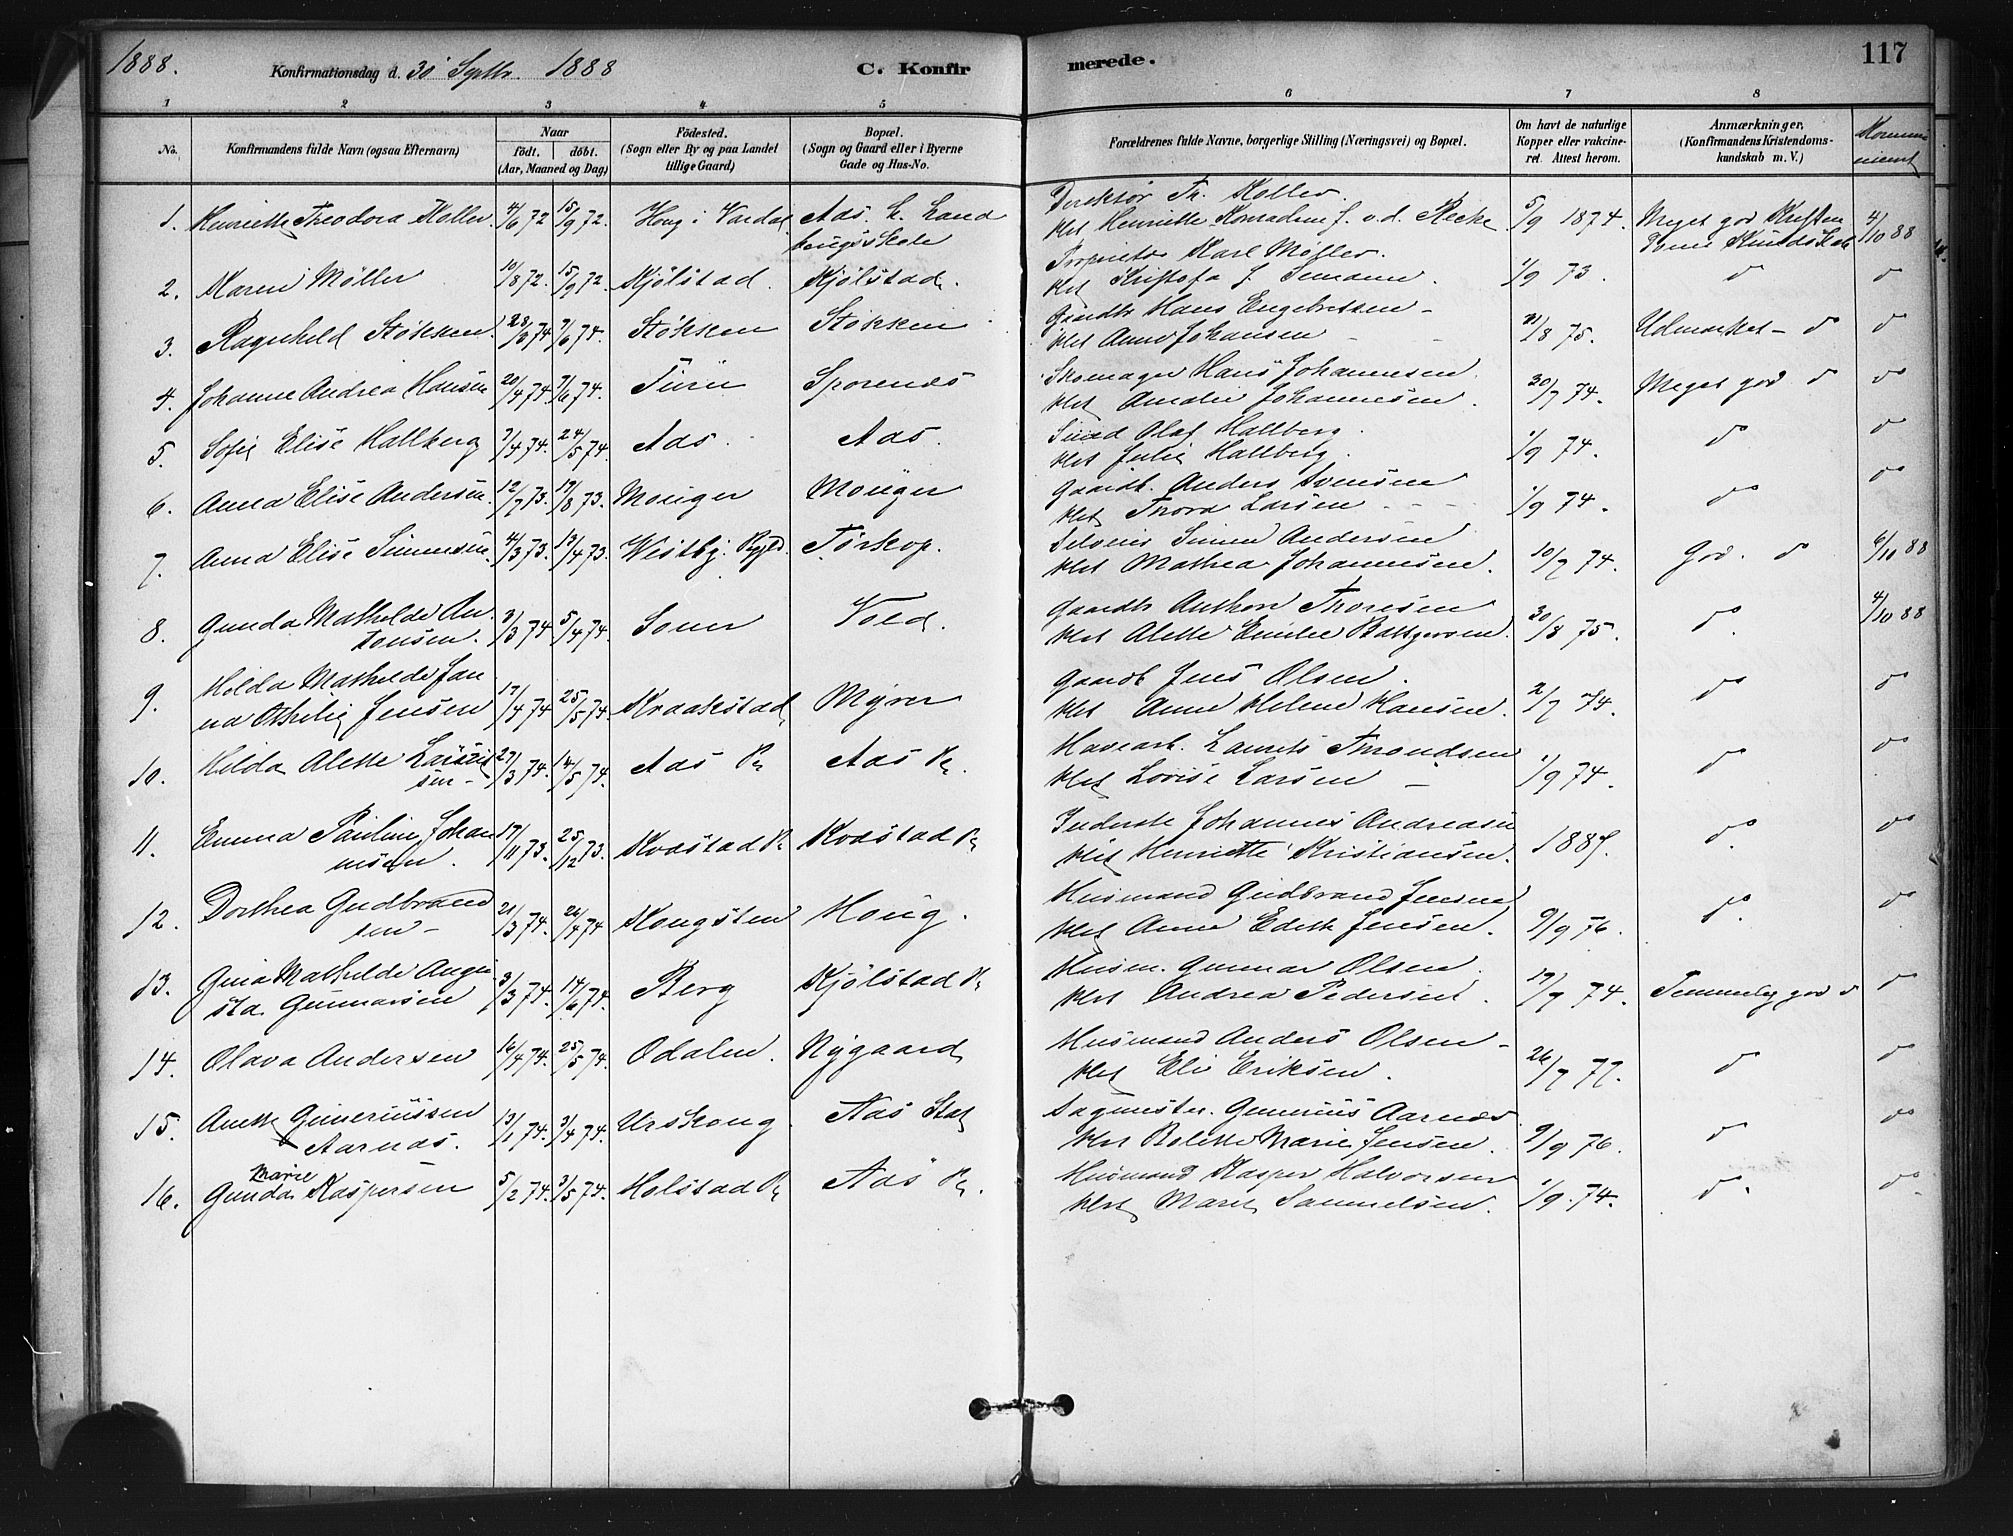 1888. Konfirmationsdag d. 30 Septbr. 1888 C. Konfirmerede. 117
1 2 3 4 5 6 7 8
No. Konfirmandens fulde Navn (ogsaa Efternavn) Naar födt. döbt. (Aar, Maaned og Dag) Födested. (Sogn eller By og paa Landet tillige Gaard) Bopæl. (Sogn og Gaard eller i Byerne Gade og Hus-No. Forældrenes fulde Navne, borgerlige Stilling (Næringsvei) og Bopæl. Om havt de naturlige Kopper eller vakcineret. Attest herom. Anmærkninger, (Konfirmandens Kristendomskundskab m. V.)
1. Henriette Theodora Koller. 4/6 72 15/9 72. i Vardal Aas h. Landbrugsskole Direktør Th. Koller. Henriette Konradine f. v. d. Recke 5/9 1874. Meget god 4/10 88
2. Karen Møller 10/8 72. 15/9 72. Kjölstad. Kjölstad. Proprietær Karl Møller. Kristofa f. 1/9 73. do do
3. Ragnhild Stökken. 74 7/6 74. Stökken Stökken Gaardb Hans Engebretsen Anne Johansen 21/8 75. Udmærket do do
4. Johanne Andrea Hansen 20/4 74. 7/6 74. Sporenes Skomager Hans Johannesen Amalie Johannesen. 30/7 74. Meget god do do
5. Sofie Elise Hallberg 7/4 74. 24/5 74. Aas. Aas. Smed Olaf Hallberg. Julie Hallberg. 1/9 74. do do
6. Anna Elise Andersen 12/7 73. 17/8 73. Monger Monger Gaardb. Anders Svensen Thora Larsen 1/9 74. do do
7. Anna Elise Simensen. 4/3 73. 13/4 73. Vestby. Tørkop. Selveier Simen Andersen Mathea Johannesen. 10/7 74. God. do 6/10 88
8. Gunda Mathilde Antonsen. 3/3 74 5/4 74. Soner Vold. Gaardb Anthon Thoresen Alette Emilie 20/8 75. do. 4/10 88
9. Hilda Mathilde Janna Othilie Jensen 17/4 74 25/5 74. Kraakstad Myrer Gaardb Jens Olsen. Anne Helene Hansen. 2/7 74. do do
10. Hilda Alette Lauritsen 27/3 74. 14/5 74. Aas Pr Aas Pr. Havearb. Laurits Throndsen Lovise Larsen 1/9 74. do do
11. Emma Pauline Johannesen. 17/11 73. 25/12 73. Kvestad Pr Kvestad Pr Inderste Johannes Andreasen Henriette Kristiansen. 1887. do. do
12. Dorthea Gudbrandsen 21/3 74. 26/4 74 Kongsten Houg. Husmand Gudbrand Jensen Anne Edith Jensen. 9/9 76. do. do
13. Gina Mathilde Augusta Gunnarsen 3/3 74. 14/6 74. Berg Kjölstad Pr Husm. Gunnar Olsen Andrea Pedersen. 17/7 74. Temmelig god do do
14. Olava Andersen 16/4 74. 25/5 74. Odalen. Nygaard Husmand Anders Olsen Eli Eriksen. 26/7 77. do do
15. Anette Guneriussen Aarnes. 13/1 74. 3/4 74. Urskoug Aas Stat Sagmester. Gunerius Aarnes Bolette Marie Jensen. 9/9 76. do do
16. Gunda Marie Kaspersen 5/2 74. 3/5 74. Holstad Pr Aas Pr. Husmand Kasper Halvorsen Marie Samuelsen. 1/9. 74. do. do